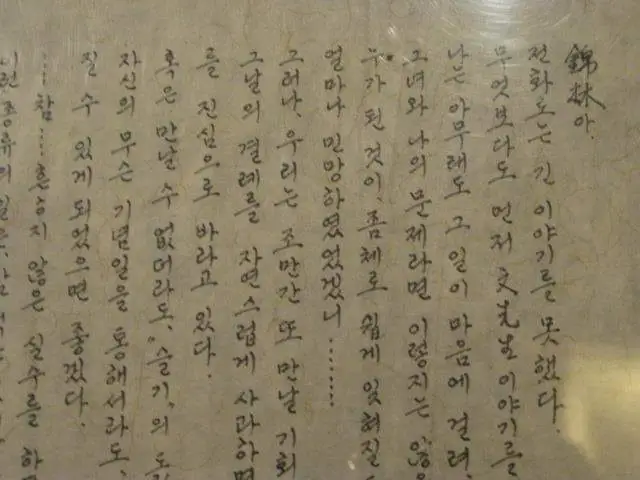 錦林아.
전화로는 긴 이야기를 못했다.
무엇보다도 먼저 文先生 이야기를
나는 아무래도 그 일이 마음에 걸려,
그녀와 나의 문제라면 이렇지는 않
누가 된 것이, 좀체로 쉽게 잊혀질
얼마나 민망하였었겠니 ······
그러나, 우리는 조만간 또 만날 기회
그날의 결례를 자연스럽게 사과하면
를 진심으로 바라고 있다.
혹은 만날 수 없더라도, "슬기"의
자신의 무슨 기념일을 통해서라도,
질 수 있게 되었으면 좋겠다.
··· 참 ··· 흔하지 않은 실수를 하
이런 종류의 일은,